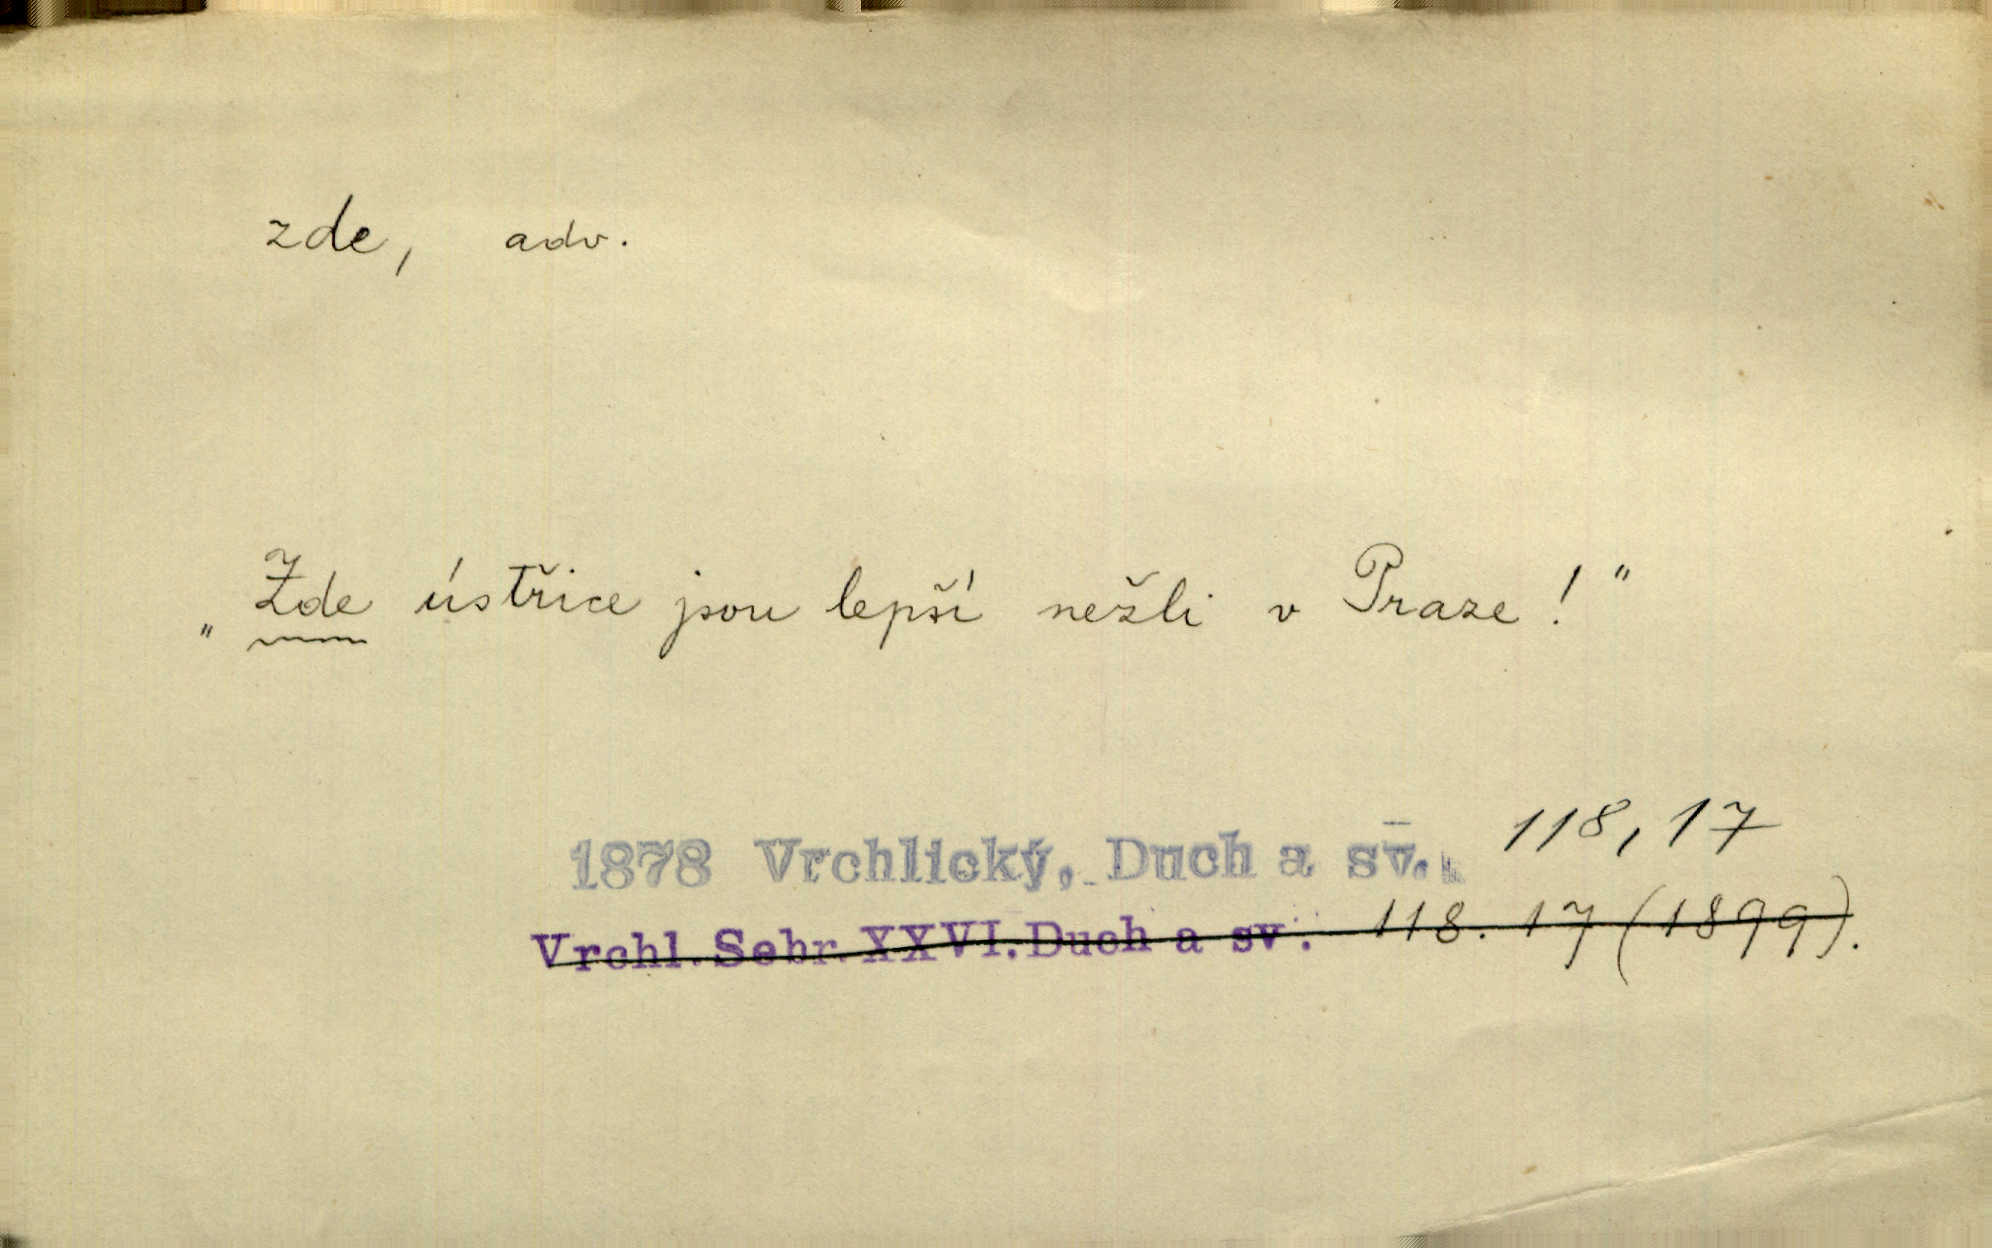 zde, adv.
„Zde ústřice jsou lepší nežli v Praze!"
1878 Vrchlický, Duch a sv. 118, 17
Vrchl. Sebr. XXVI. Duch a sv. 118. 17 (1899).